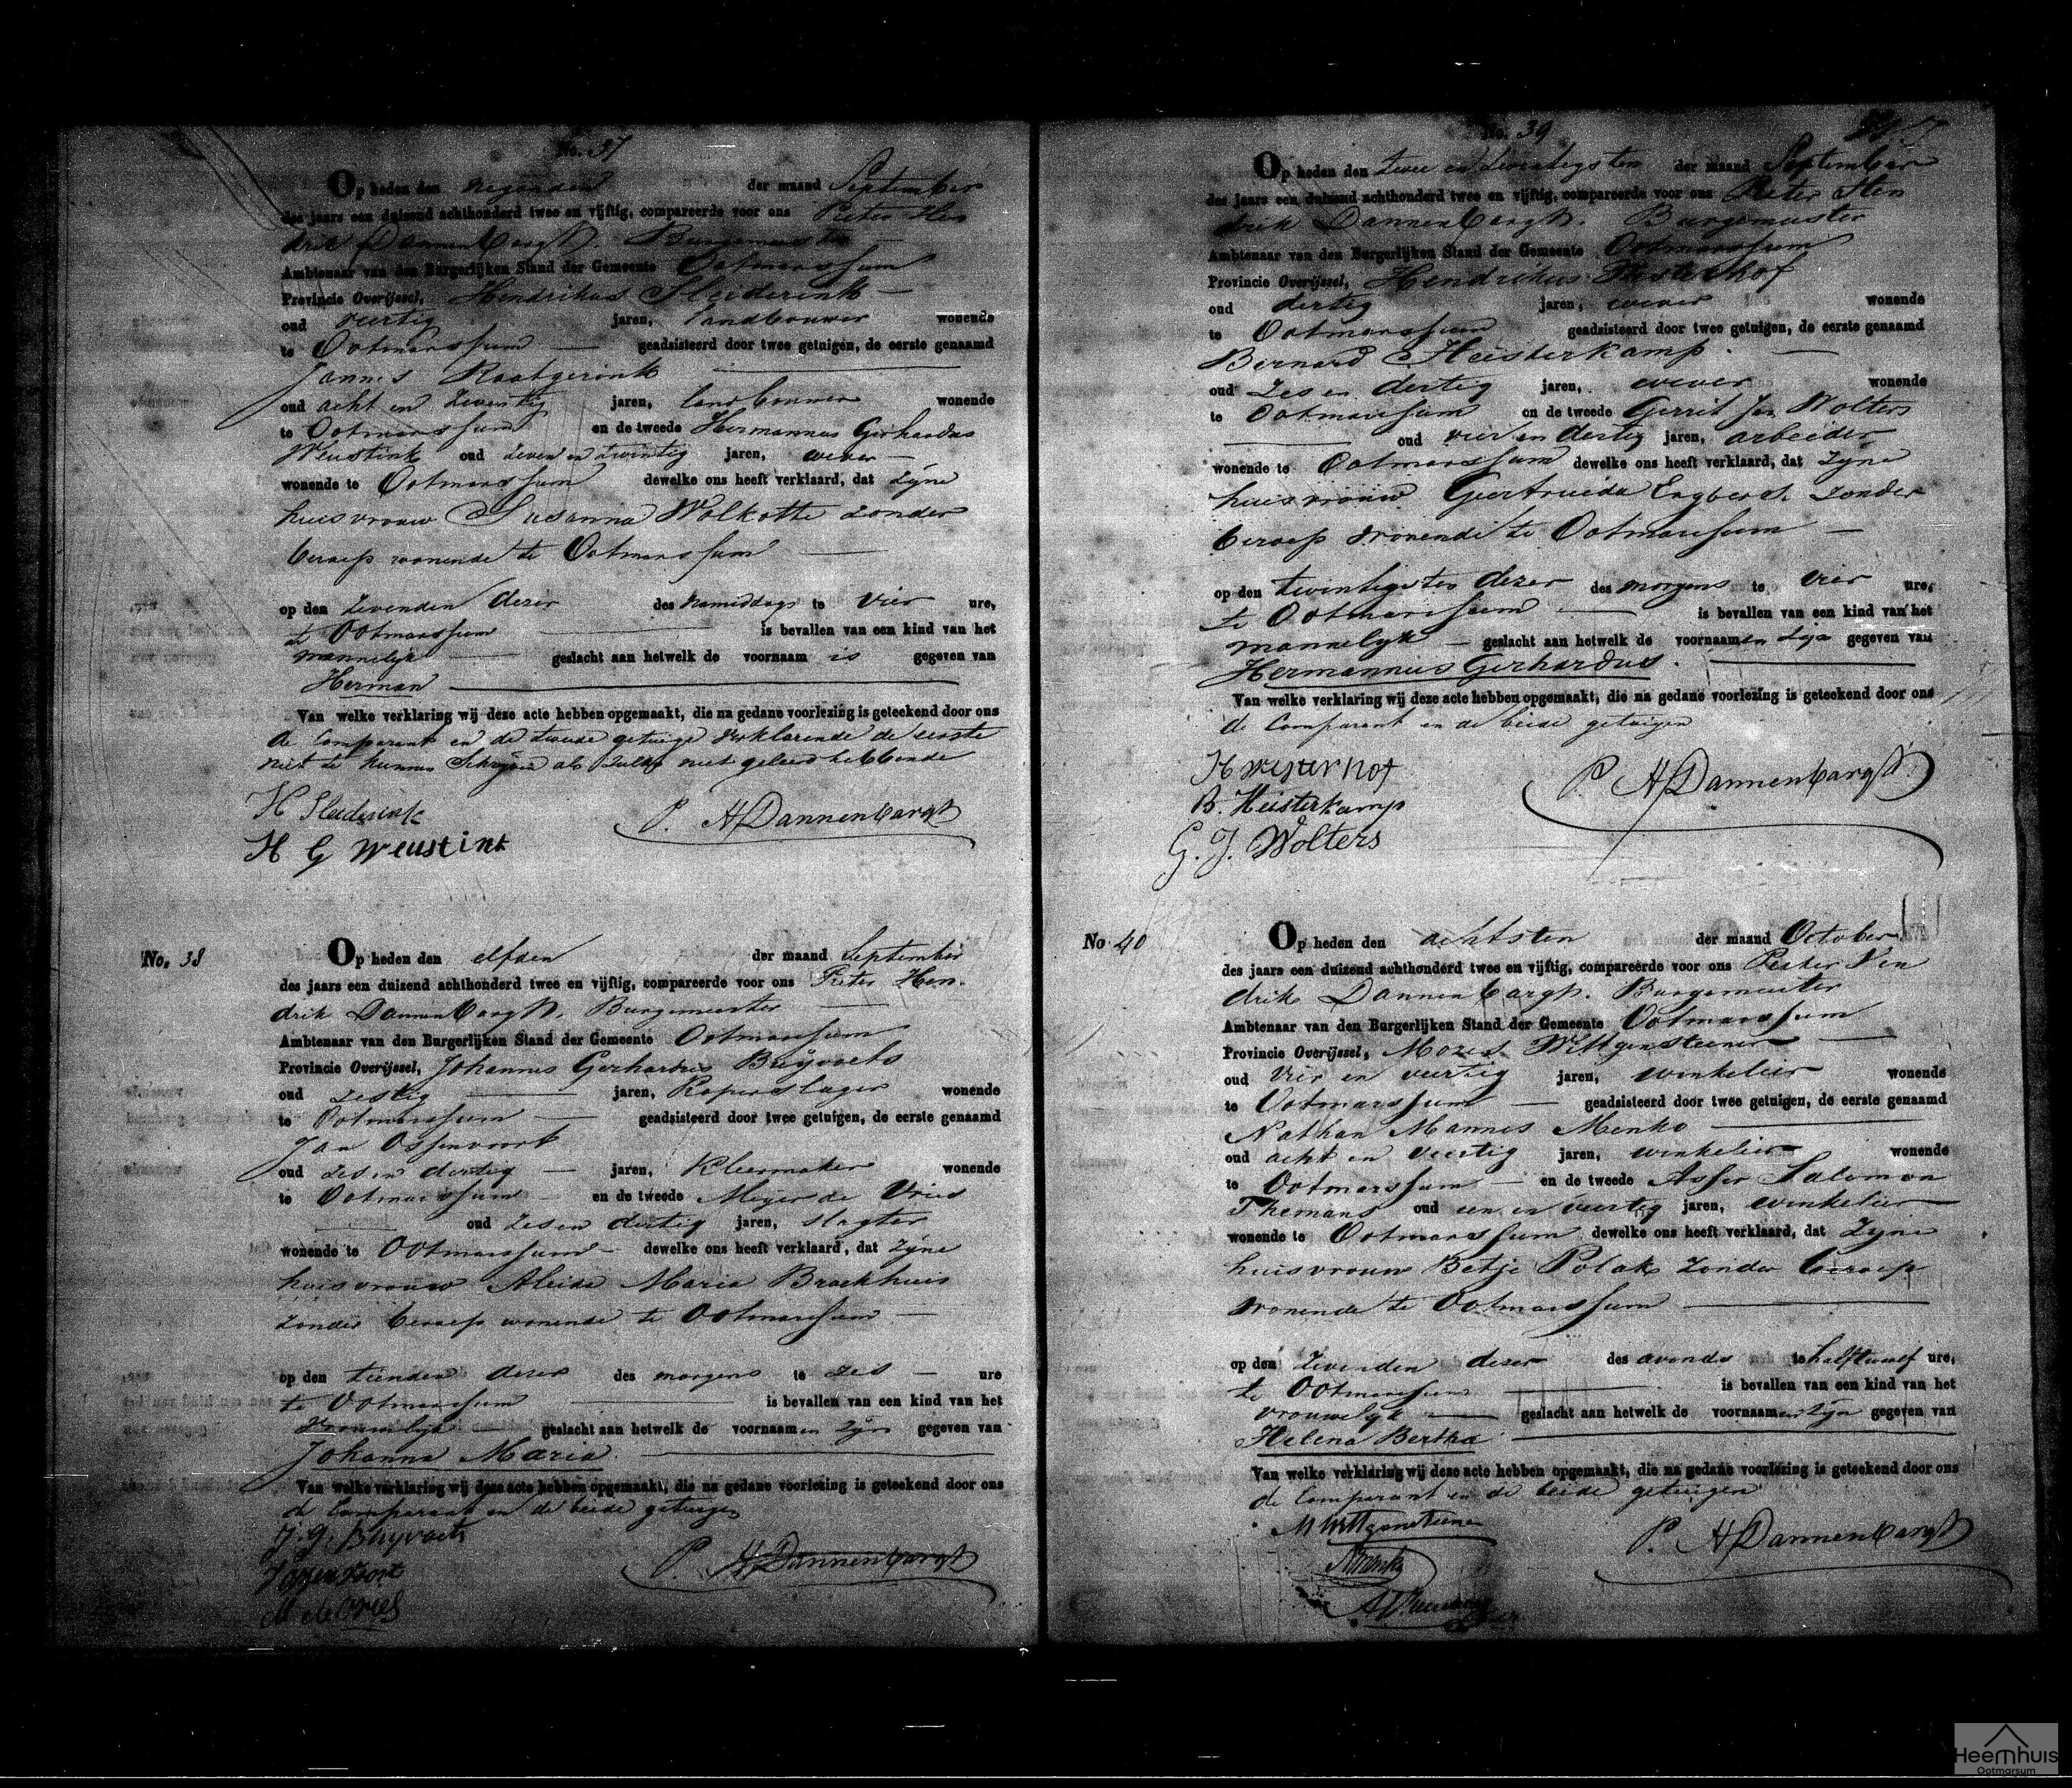 No. 37
Op heden den negenden der maand September
des jaars een duizend achthonderd twee en vijftig, compareerde voor ons Pieter Hen
drik Dannenbargh. Burgemeester
Ambtenaar van den Burgerlijken Stand der Gemeente Ootmarssum
Provincie Overijssel, Hendrikus Sleiderink
oud veertig jaren, landbouwer wonende
te Ootmarssum geadsisteerd door twee getuigen, de eerste genaamd
Jannes Raatgerink
oud acht en zeventig jaren, landbouwer wonende
te Ootmarssum en de tweede Hermannus Gerhardus
Weustink oud zeven en twintig jaren, wever
wonende te Ootmarssum dewelke ons heeft verklaard, dat zyne
huisvrouw Susanna Wolkotte zonder
beroep wonende te Ootmarssum
op den zevenden dezer des namiddags te vier ure,
te Ootmarssum is bevallen van een kind van het
mannelijk geslacht aan hetwelk de voornaam is gegeven van
Herman
Van welke verklaring wij deze acte hebben opgemaakt, die na gedane voorlezing is geteekend door ons
de Comparant en de tweede getuige verklarende de eerste
niet te kunnen Schryven als zulks niet geleerd hebbende
H Sleiderink
P. H Dannenbargh
H G Weustink
No. 38
Op heden den elfden der maand September
des jaars een duizend achthonderd twee en vijftig, compareerde voor ons Pieter Hen.
drik Dannenbargh. Burgemeester
Ambtenaar van den Burgerlijken Stand der Gemeente Ootmarssum
Provincie Overijssel, Johannes Gerhardus Buyvoets
oud zestig jaren, Koperslager wonende
te Ootmarssum geadsisteerd door twee getuigen, de eerste genaamd
Jan Ossenvoort
oud zes en dertig jaren, Kleermaker wonende
te Ootmarssum en de tweede Meyer de Vries
oud zes en dertig jaren, slagter
wonende te Ootmarssum dewelke ons heeft verklaard, dat zyne
huisvrouw Aleida Maria Braekhuis
zonder beroep wonende te Ootmarssum
op den tienden dezer des morgens te zes ure
te Ootmarssum is bevallen van een kind van het
vrouwelyk geslacht aan hetwelk de voornaamen zyn gegeven van
Johanna Maria
Van welke verklaring wij deze acte hebben opgemaakt, die na gedane voorlezing is geteekend door ons
de Comparant en de beide getuigen
J. G. Buyvoets
P. H Dannenbargh
M de Vries
No. 39
Op heden den twee en twentigsten der maand September
des jaars een duizend achthonderd twee en vijftig, compareerde voor ons Pieter Hen
drik Dannenbargh. Burgemeester
Ambtenaar van den Burgerlijken Stand der Gemeente Ootmarssum
Provincie Overijssel, Hendrikus Westerhof
oud dertig jaren, wever wonende
te Ootmarssum geadsisteerd door twee getuigen, de eerste genaamd
Bernard Heisterkamp.
oud zes en dertig jaren, wever wonende
te Ootmarssum en de tweede Gerrit Jan Wolters
oud vier en dertig jaren, arbeider
wonende te Ootmarssum dewelke ons heeft verklaard, dat zyne
huisvrouw Geertruida Engbersh zonder
beroep wonende te Ootmarssum
op den twintigsten dezer des morgens te vier ure,
te Ootmarssum is bevallen van een kind van het
mannelyk geslacht aan hetwelk de voornaamen zyn gegeven van
Hermannus Gerhardus.
Van welke verklaring wij deze acte hebben opgemaakt, die na gedane voorlezing is geteekend door ons
de Comparant en de beide getuigen
H Westerhof
P. H Dannenbargh
B. Heisterkamp
G. J. Wolters
No. 40
Op heden den achtsten der maand October
des jaars een duizend achthonderd twee en vijftig, compareerde voor ons Pieter Hen
drik Dannenbargh. Burgemeester
Ambtenaar van den Burgerlijken Stand der Gemeente Ootmarssum
Provincie Overijssel, Mozes Wittgensteiner
oud vier en veertig jaren, winkelier wonende
te Ootmarssum geadsisteerd door twee getuigen, de eerste genaamd
Nathan Mannes Menko
oud acht en veertig jaren, winkelier wonende
te Ootmarssum en de tweede Asser Salomon
Themans oud een en veertig jaren, winkelier
wonende te Ootmarssum dewelke ons heeft verklaard, dat zyne
huisvrouw Betje Polak zonder beroep
wonende te Ootmarssum
op den zevenden dezer des avonds te halftwaalf ure,
te Ootmarssum is bevallen van een kind van het
vrouwelyk geslacht aan hetwelk de voornaamen zyn gegeven van
Helena Bertha
Van welke verklaring wij deze acte hebben opgemaakt, die na gedane voorlezing is geteekend door ons
de Comparant en de beide getuigen
M Wittgensteiner
P. H Dannenbargh
Heemhuis
Ootmarsum